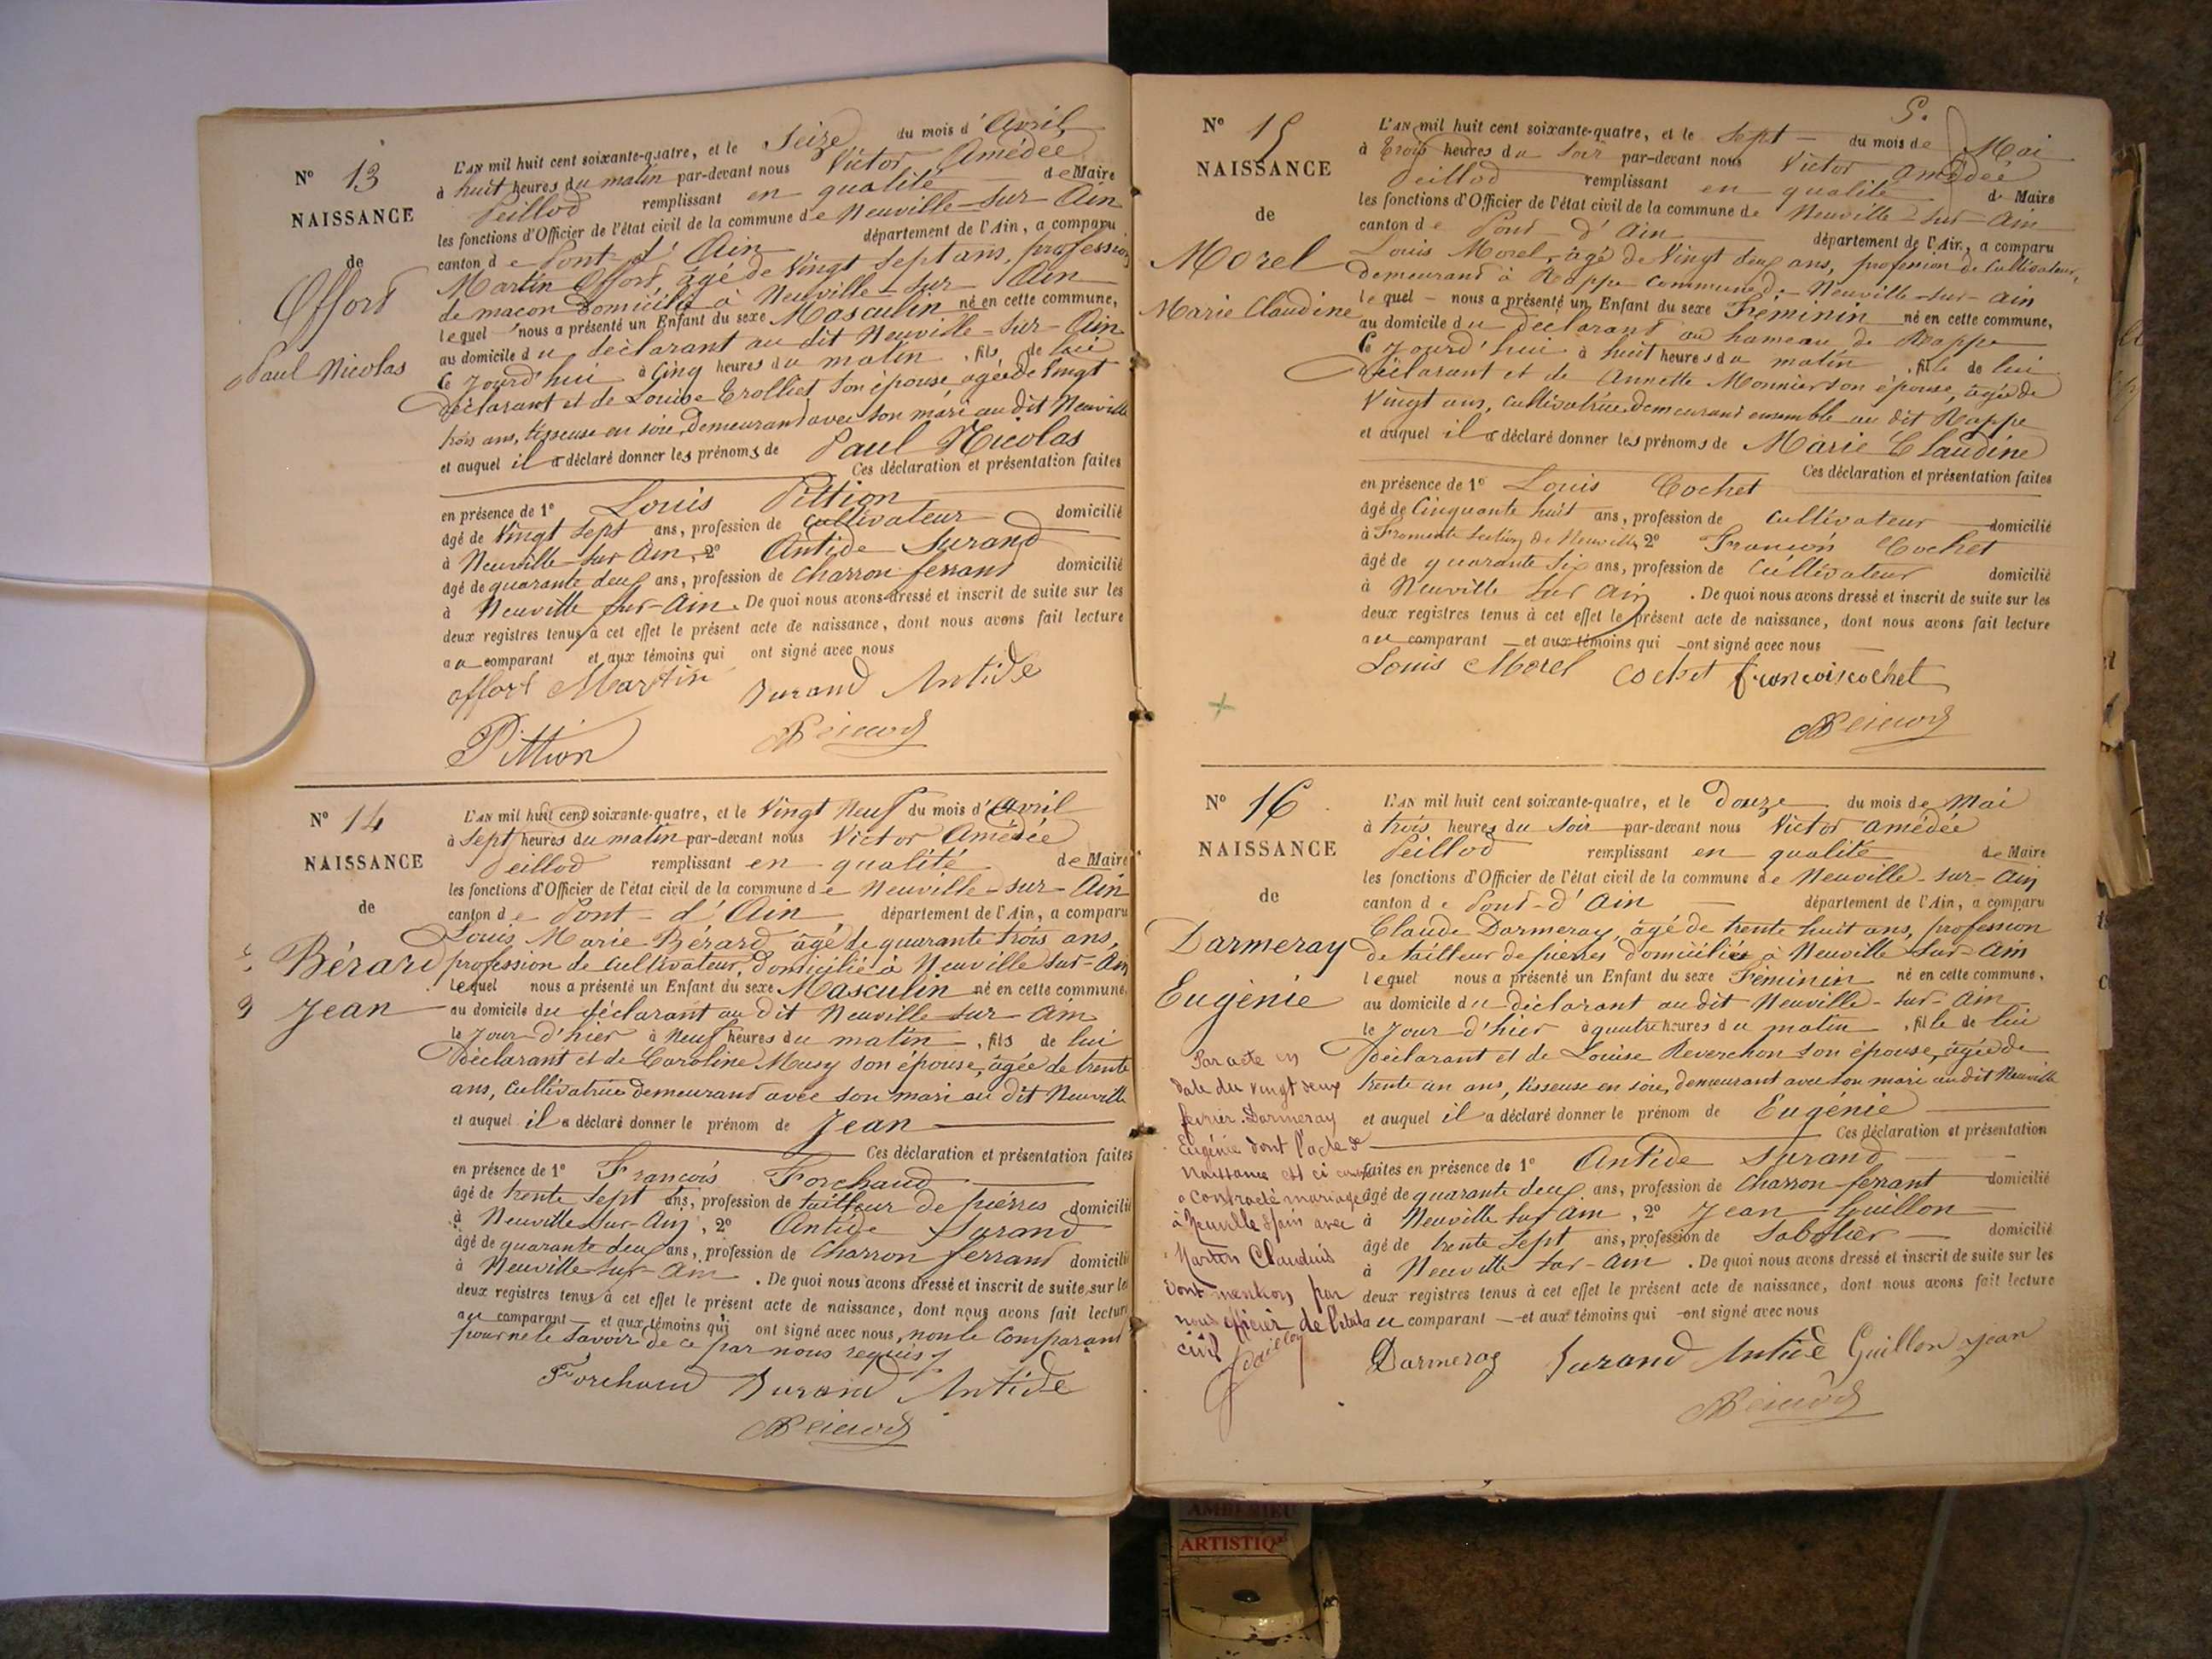 N° 13
NAISSANCE
de
Offort
Paul Nicolas
L'AN mil huit cent soixante-quatre, et le Seize du mois d'Avril
à huit heures du matin par-devant nous Victor Amédée
Peillod remplissant en qualité de Maire
les fonctions d'Officier de l'état civil de la commune de Neuville-sur-Ain
canton de Pont-d'Ain département de l'Ain, a comparu
Martin Offort, âgé de Vingt Sept ans, profession
de macon Domicilié à Neuville-sur-Ain
lequel nous a présenté un Enfant du sexe Masculin né en cette commune,
au domicile du déclarant au dit Neuville-sur-Ain
Ce Jourd'hui à Cinq heures du matin, fils de lui
Déclarant et de Louise Trolliet Son épouse agée de Vingt
trois ans, tisseuse en soie, Demeurant avec son mari au dit Neuville
et auquel il a déclaré donner les prénoms de Paul Nicolas
Ces déclaration et présentation faites
en présence de 1° Louis Pittion
âgé de Vingt Sept ans, profession de cultivateur domicilié
à Neuville-sur-Ain, 2° Antide Jurand
âgé de quarante deux ans, profession de Charron ferrant domicilié
à Neuville sur-Ain. De quoi nous avons dressé et inscrit de suite sur les
deux registres tenus à cet effet le présent acte de naissance, dont nous avons fait lecture
au comparant et aux témoins qui ont signé avec nous
offort Martin Jurand Antide
Pittion
N° 14
NAISSANCE
de
Bérard
Jean
L'AN mil huit cent soixante-quatre, et le Vingt Neuf du mois d'Avril
à Sept heures du matin par-devant nous Victor Amédée
Peillod remplissant en qualité de Maire
les fonctions d'Officier de l'état civil de la commune de Neuville-sur-Ain
canton de Pont-d'Ain département de l'Ain, a comparu
Louis Marie Bérard âgé de quarante trois ans,
profession de Cultivateur, Domicilié à Neuville sur-Ain
Lequel nous a présenté un Enfant du sexe Masculin né en cette commune,
au domicile du déclarant au dit Neuville sur-Ain
le Jour d'hier à Neuf heures du matin, fils de lui
Déclarant et de Caroline Musy son épouse, âgée de trente
ans, Cultivatrice demeurant avec son mari au dit Neuville
et auquel il a déclaré donner le prénom de Jean
Ces déclaration et présentation faites
en présence de 1° François Forchaud
âgé de trente Sept ans, profession de tailleur de pierres domicilié
à Neuville Sur-Ain, 2° Antide Jurand
âgé de quarante deux ans, profession de Charron ferrant domicilié
à Neuville Sur-Ain. De quoi nous avons dressé et inscrit de suite sur les
deux registres tenus à cet effet le présent acte de naissance, dont nous avons fait lecture
au comparant et aux témoins qui ont signé avec nous, non le Comparant
pour ne le Savoir de ce par nous requis
Forchaud Jurand Antide
5.
N° 15
NAISSANCE
de
Morel
Marie Claudine
L'AN mil huit cent soixante-quatre, et le Sept du mois de Mai
à Trois heures du Soir par-devant nous Victor Amédée
Peillod remplissant en qualité de Maire
les fonctions d'Officier de l'état civil de la commune de Neuville-sur-Ain
canton de Pont-d'Ain département de l'Ain, a comparu
Louis Morel, âgé de Vingt deux ans, profession de Cultivateur,
demeurant à Rappe Commune de Neuville-sur-Ain
lequel nous a présenté un Enfant du sexe Féminin né en cette commune,
au domicile du déclarant au hameau de Rappe
Ce Jourd'hui à huit heures du matin, fille de lui
Déclarant et de Annette Monnier son épouse, âgée de
Vingt ans, cultivatrice demeurant ensemble au dit Rappe
et auquel il a déclaré donner les prénoms de Marie Claudine
Ces déclaration et présentation faites
en présence de 1° Louis Cochet
âgé de Cinquante huit ans, profession de Cultivateur domicilié
à Fromente Section de Neuville, 2° François Cochet
âgé de quarante Six ans, profession de Cultivateur domicilié
à Neuville sur Ain. De quoi nous avons dressé et inscrit de suite sur les
deux registres tenus à cet effet le présent acte de naissance, dont nous avons fait lecture
au comparant et aux témoins qui ont signé avec nous
Louis Morel Cochet françois cochet
N° 16
NAISSANCE
de
Darmeray
Eugénie
L'AN mil huit cent soixante-quatre, et le Douze du mois de Mai
à trois heures du Soir par-devant nous Victor Amédée
Peillod remplissant en qualité de Maire
les fonctions d'Officier de l'état civil de la commune de Neuville-sur-Ain
canton de Pont-d'Ain département de l'Ain, a comparu
Claude Darmeray, âgé de trente huit ans, profession
de tailleur de pierres domicilié à Neuville sur-Ain
lequel nous a présenté un Enfant du sexe Féminin né en cette commune,
au domicile du déclarant au dit Neuville-sur-Ain
le Jour d'hier à quatre heures du matin, fille de lui
Déclarant et de Louise Reverchon son épouse, âgée de
trente un ans, tisseuse en soie, demeurant avec son mari au dit Neuville
et auquel il a déclaré donner le prénom de Eugénie
Ces déclaration et présentation
faites en présence de 1° Antide Jurand
âgé de quarante deux ans, profession de Charron-ferrant domicilié
à Neuville sur Ain, 2° Jean Guillon
âgé de trente Sept ans, profession de Sabotier domicilié
à Neuville sur-Ain. De quoi nous avons dressé et inscrit de suite sur les
deux registres tenus à cet effet le présent acte de naissance, dont nous avons fait lecture
au comparant et aux témoins qui ont signé avec nous
Darmeray Jurand Antide Guillon Jean
Par acte en
date du vingt deux
février Darmeray
Eugénie dont l'acte de
naissance est ci
a contracté mariage
à Neuville avec
Claudius
dont mention par
nous officier de l'état
civil
ARTISTIQ